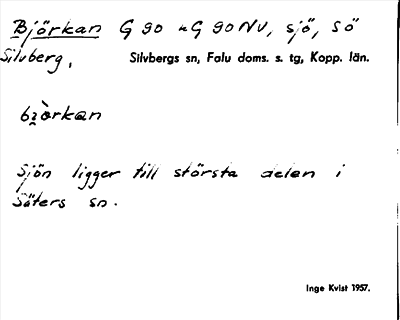 Björkan G 90 n G 90 NV, sjö, SÖ
Silvberg, Silvbergs sn, Falu doms. s. tg, Kopp. län.
bi̯òrkan
Sjön ligger till största delen i
Säters sn.
Inge Kvist 1957.